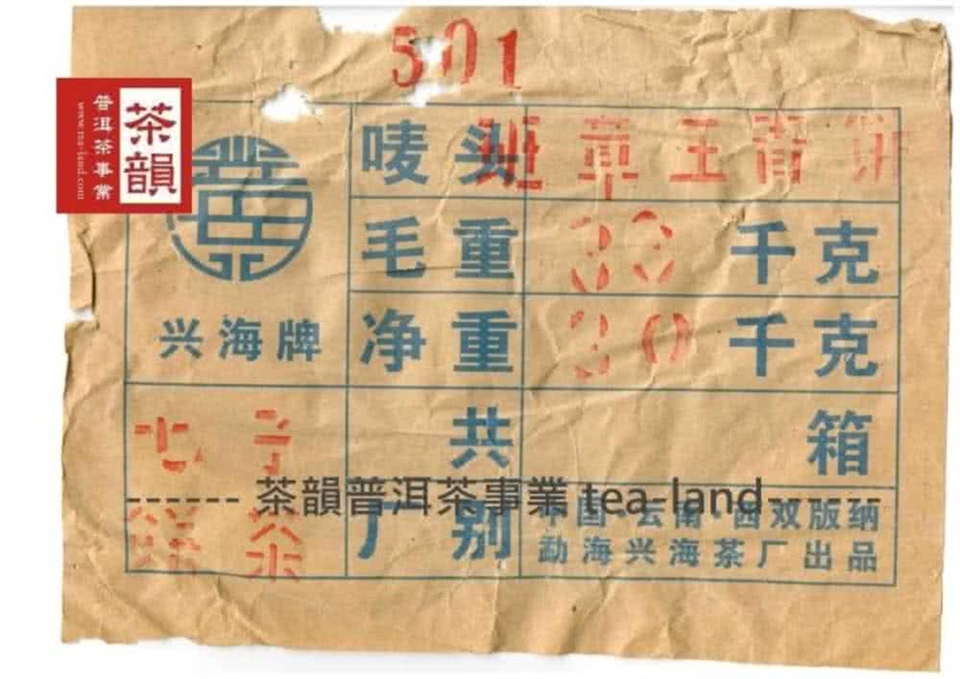 501
茶韻
普洱茶事業
www.tea-land.com
唛头 班章王青饼
毛重 33 千克
兴海牌
净重 30 千克
七子
饼茶
共 箱
------ 茶韻普洱茶事業 tea-land------
厂别 中国·云南·西双版纳
勐海兴海茶厂出品